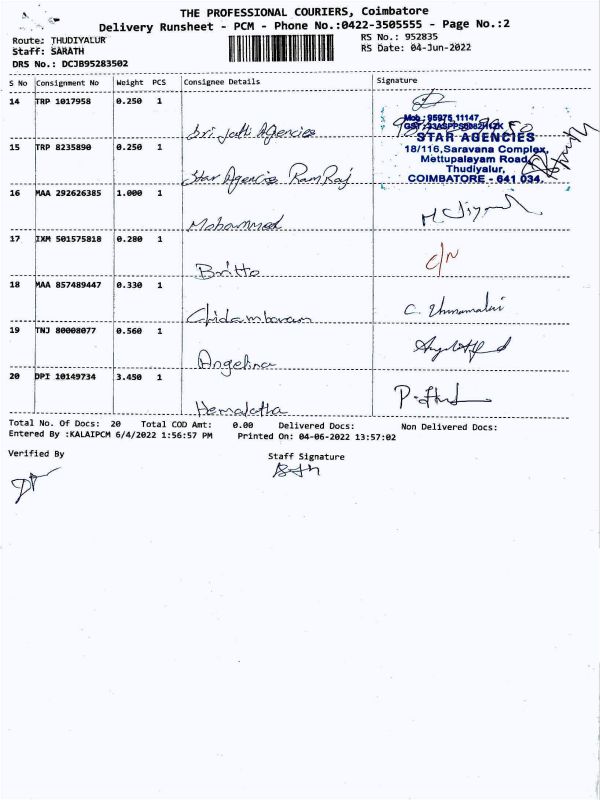 THE PROFESSIONAL COURIERS, Coimbatore
Delivery Runsheet - PCM - Phone No.:0422-3505555 - Page No.:2
Route: THUDIYALUR
Staff: SARATH
DRS No.: DCJB95283502
RS No.: 952835
RS Date: 04-Jun-2022
S No Consignment No Weight PCS Consignee Details Signature
14 TRP 1017958 0.250 1
Sri. Jothi Agencies
Mob : 95975 11147
STAR AGENCIES
18/116,Saravana Complex,
Mettupalayam Road,
Thudiyalur,
COIMBATORE - 641 034.
15 TRP 8235890 0.250 1
Star Agencies RamRaj
16 MAA 292626385 1.000 1
Mohammad
17 IXM 501575818 0.280 1
Britto C/N
18 MAA 857489447 0.330 1
Chidambaram
19 TNJ 80008077 0.560 1
Angelina
20 DPI 10149734 3.450 1
Hemalatha
Total No. Of Docs: 20 Total COD Amt: 0.00 Delivered Docs: Non Delivered Docs:
Entered By :KALAIPCM 6/4/2022 1:56:57 PM Printed On: 04-06-2022 13:57:02
Verified By Staff Signature